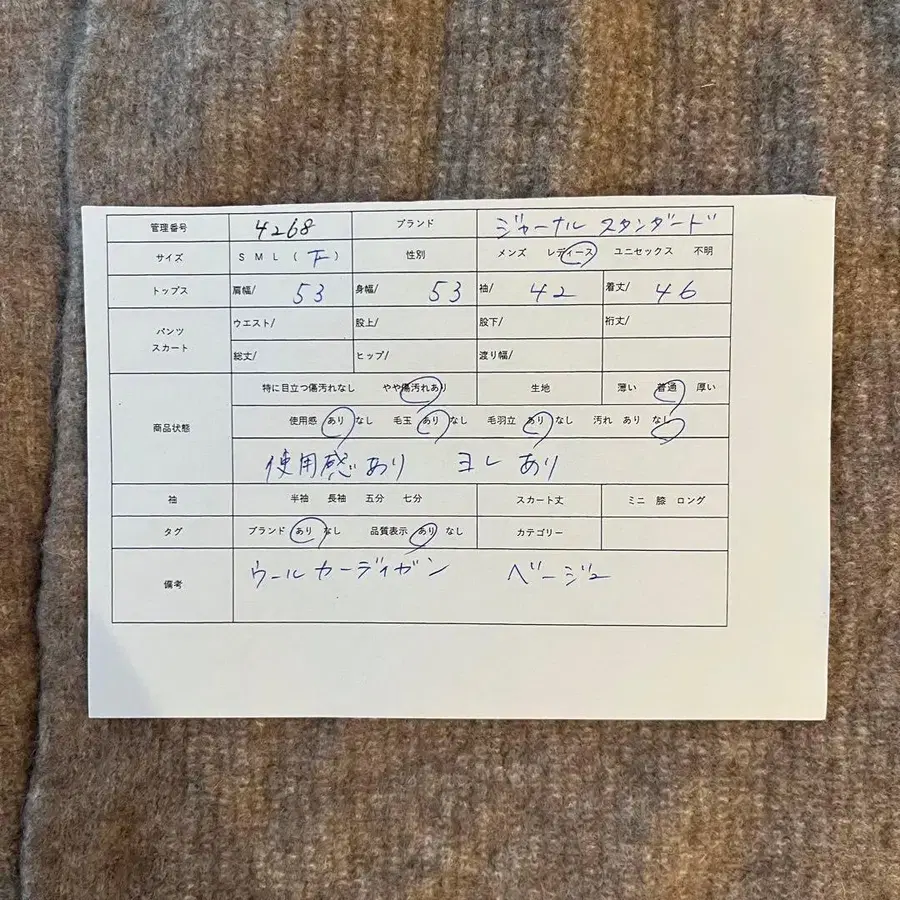 管理番号 4268 ブランド ジャーナル スタンダード
サイズ S M L ( F ) 性別 メンズ レディース ユニセックス 不明
トップス 肩幅/ 53 身幅/ 53 袖/ 42 着丈/ 46
パンツ スカート ウエスト/ 股上/ 股下/ 裄丈/
総丈/ ヒップ/ 渡り幅/
特に目立つ傷汚れなし やや傷汚れあり 生地 薄い 普通 厚い
商品状態 使用感 あり なし 毛玉 あり なし 毛羽立 あり なし 汚れ あり なし
使用感あり ヨレあり
袖 半袖 長袖 五分 七分 スカート丈 ミニ 膝 ロング
タグ ブランド あり なし 品質表示 あり なし カテゴリー
備考 ウールカーディガン ベージュ